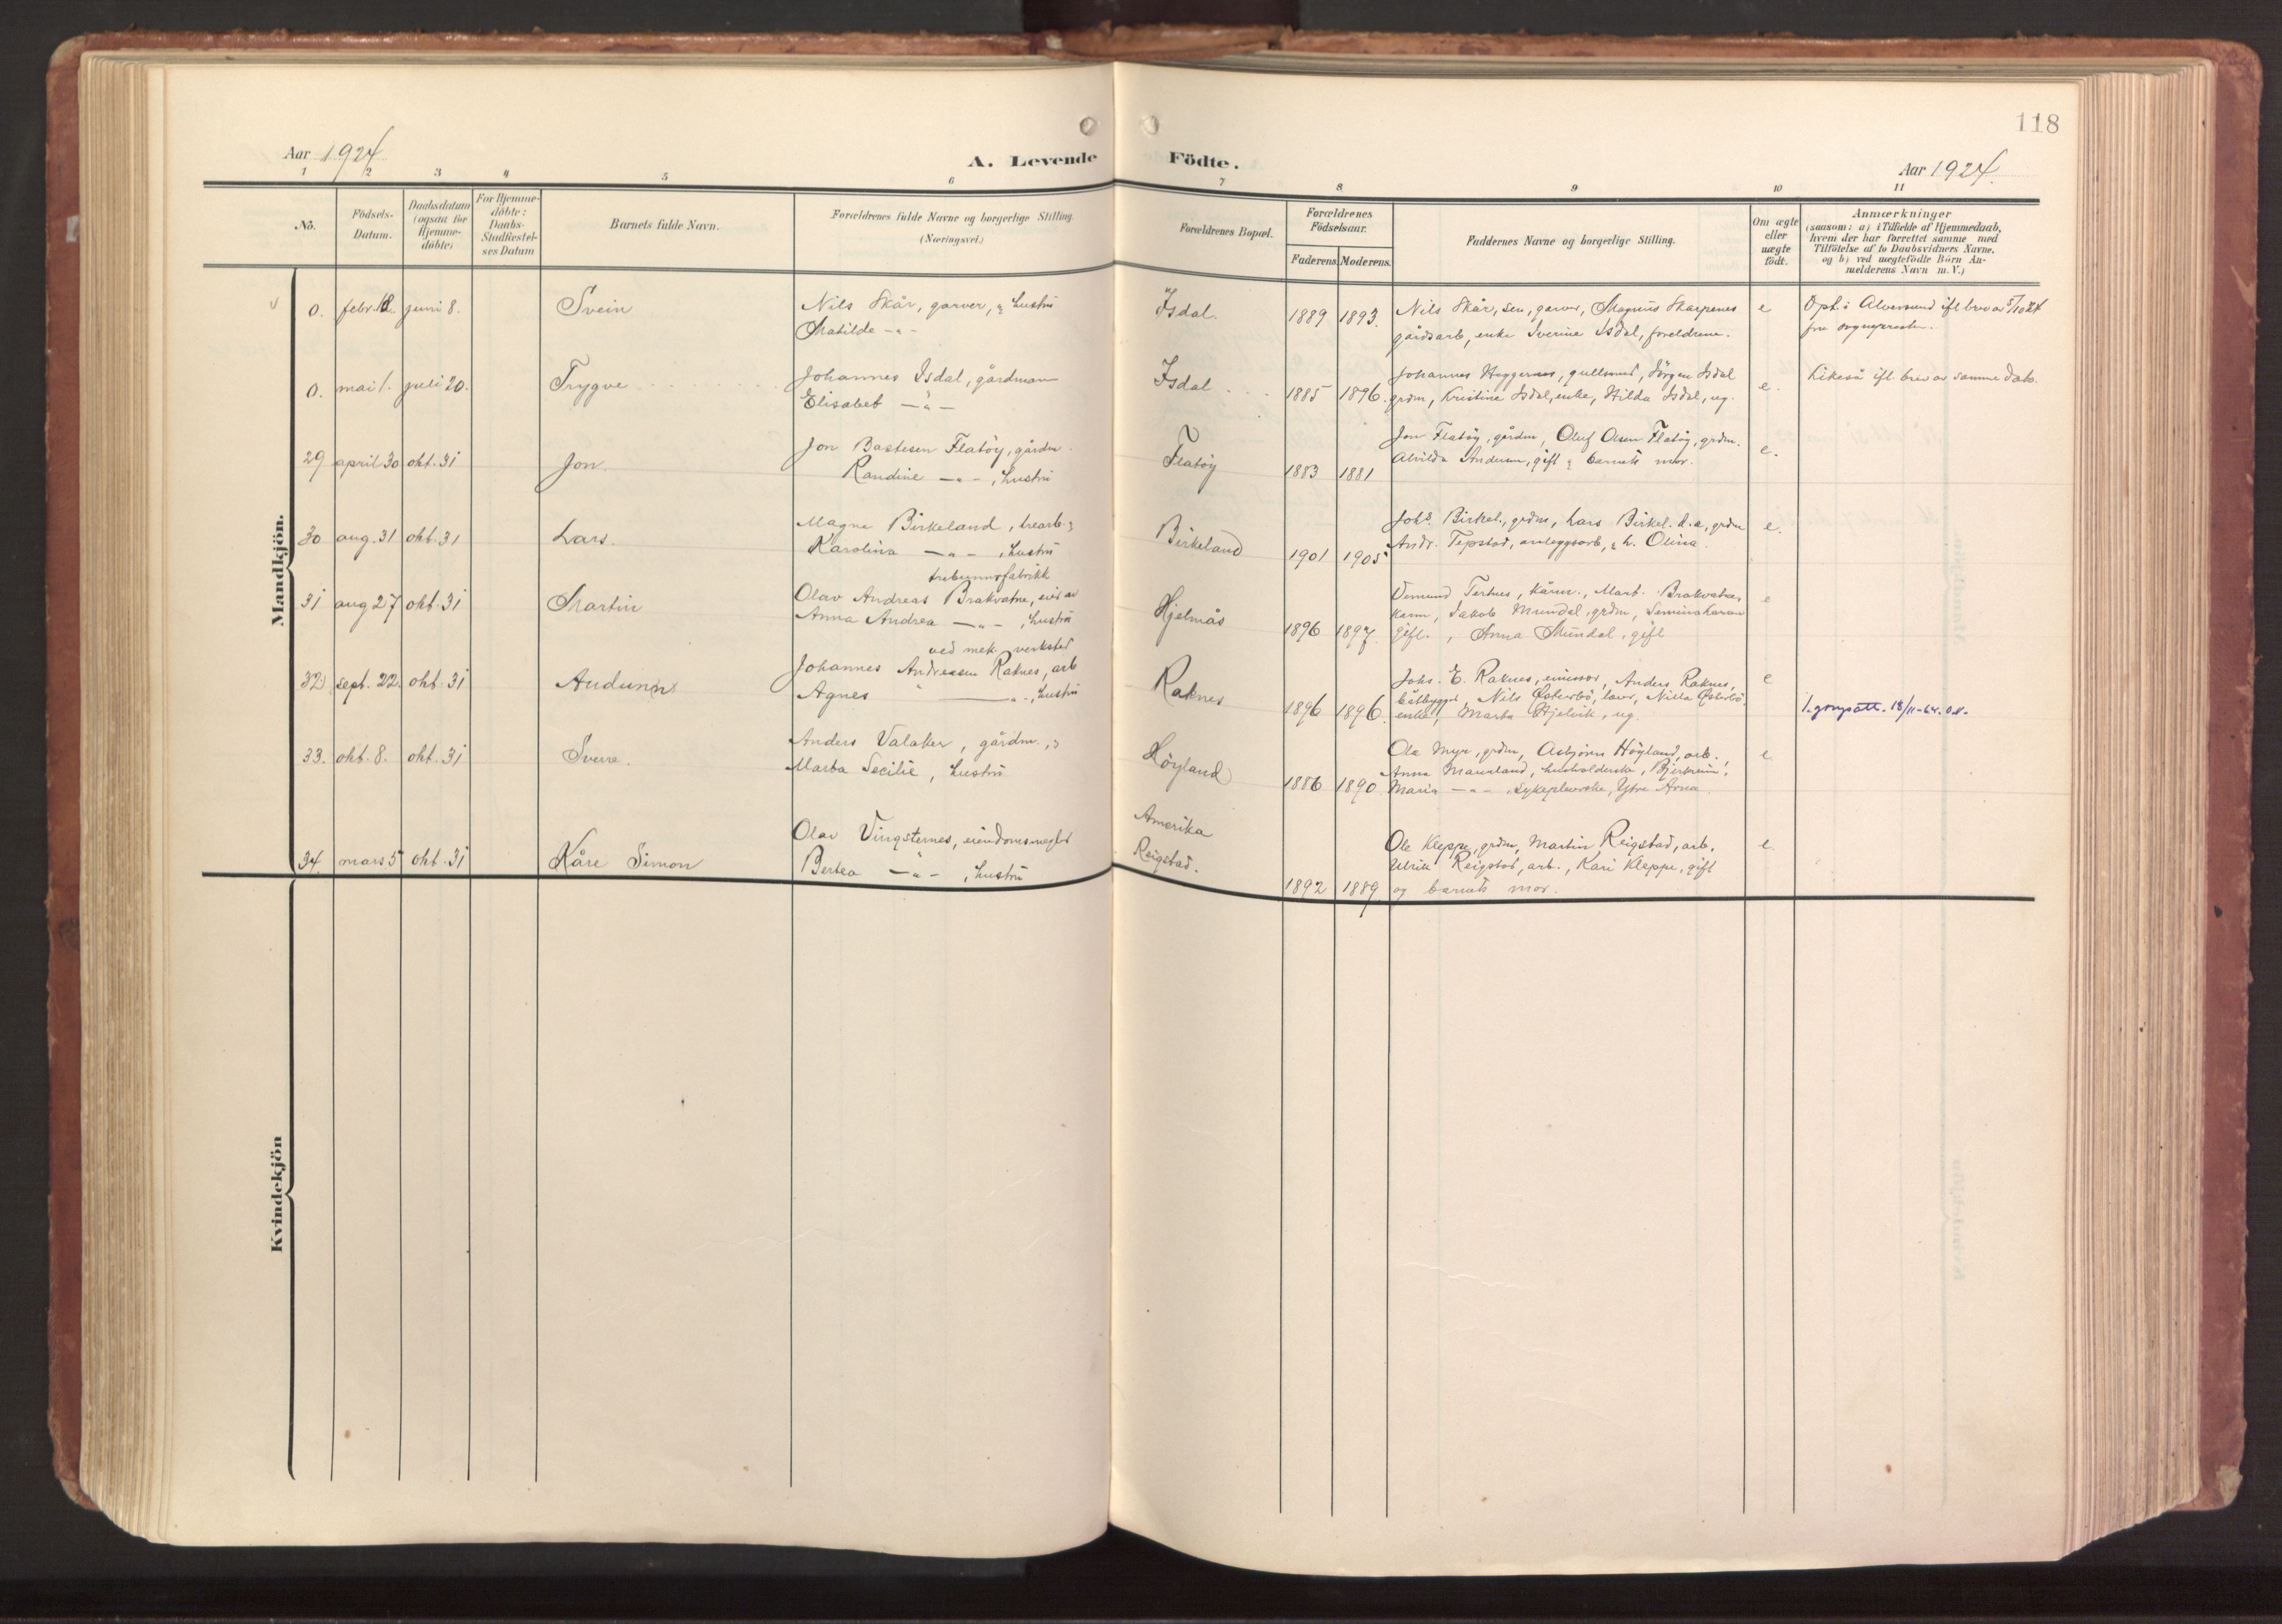 118
Aar 1924
A. Levende Födte.
Aar 1924.
1 2 3 4 5 6 7 8 9 10 11
No.
Födsels-
Datum.
Daabsdatum
(ogsaa for
Hjemme-
döbte)
For Hjemme-
döbte:
Daabs-
Stadfestel-
ses Datum
Barnets fulde Navn.
Forældrenes fulde Navne og borgerlige Stilling.
(Næringsvei.)
Forældrenes Bopæl.
Forældrenes
Födselsaar.
Faderens. Moderens.
Faddernes Navne og borgerlige Stilling.
Om ægte
eller
uægte
födt.
Anmærkninger
(saasom: a) i Tilfælde af Hjemmedaab,
hvem der har forrettet samme med
Tilföielse af to Daabsvidners Navne.
og b) ved uægtefödte Börn An-
melderens Navn m. V.)
Mandkjön.
0. febr. juni 8. Svein
Nils Skår, garver, & hustru
Matilde -"-
Isdal. 1889 1893.
Nils Skår, sen, garver, Magnus Skarpenes
gårdsarb, enke Iverine Isdal, foreldrene.
e
Opt. i Alversund ifl brev av 5/10 24
fra sognepresten.
0. mai 1. juli 20. Trygve
Johannes Isdal, gårdman
Elisabet -"-
Isdal 1885 1896.
Johannes Heggernes, gullsmed, Jörgen Isdal
grdm, Kristine Isdal, enke, Hilda Isdal, ug.
e.
Likeså ifl. brev av samme dato.
29 april 30 okt. 31 Jon.
Jon Bastesen Flatöy, gårdm.
Randine -"-, hustru
Flatöy 1883 1881
Jon Flatöy, gårdm, Oluf Olsen Flatöy, grdm.
Alvilda Andersen, gift & barnets mor.
e.
30 aug. 31 okt. 31 Lars.
Magne Birkeland, trearb. &
Karolina -"-, hustru
Birkeland 1901 1905
Johs. Birkel., grdm, Lars Birkel. d.e, grdm
Andr. Tepstad, anleggsarb, & h. Olina.
e.
31 aug 27 okt. 31 Martin
Olav Andreas Brakvatne, eier av
Anna Andrea -"-, hustru
Hjelmås 1896 1897
Brakvatne
Jakob Mundal, grdm,
gift., Anna Mundal, gift
e
32 sept. 22. okt. 31 Audunn
ved mek. verksted
Johannes Andreasen Raknes, arb
Agnes -"-, hustru
Raknes 1896 1896.
Johs. E. Raknes, emissær, Anders Raknes,
båtbygger, Nils Østerbö, lærer, Nilla Østerbö,
enke, Marta Hjelvik, ug.
e
1. gongsatt. 18/11-64.
33. okt. 8. okt. 31 Sverre.
Anders Valaker, gårdm., &
Marta Secilie, hustru
Höyland 1886 1890
Ole Myr, grdm, Asbjörn Höyland, arb.,
Anna Maurland, husholderske, Bjerkreim,
Maria -"-, sykepleierske, Ytre Arna.
e.
34. mars 5 okt. 31 Kåre Simon
Olav Vingsternes, eiendomsmegler
Bertea -"-, hustru
Amerika
Reigstad.
1892 1889.
Ole Kleppe, grdm, Martin Reigstad, arb.
Ulrik Reigstad, arb., Kari Kleppe, gift
og barnets mor.
e.
Kvindekjön